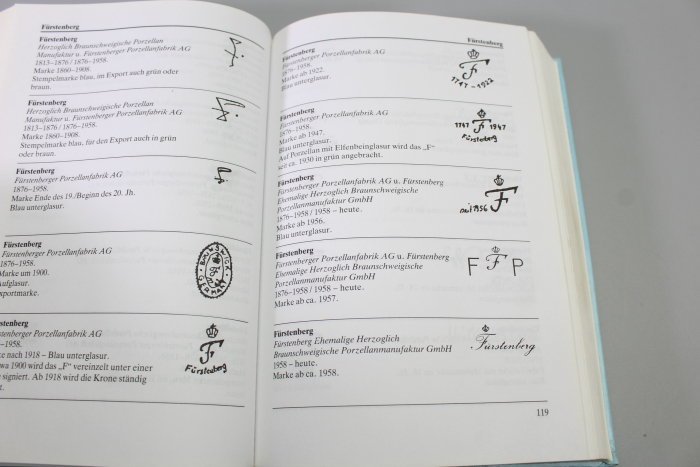 Fürstenberg
Fürstenberg
Herzoglich Braunschweigische Porzellan
Manufaktur u. Fürstenberger Porzellanfabrik AG
1813–1876 / 1876–1958.
Marke 1860–1908.
Stempelmarke blau, im Export auch grün oder
braun.
Fürstenberg
Herzoglich Braunschweigische Porzellan
Manufaktur u. Fürstenberger Porzellanfabrik AG
1813–1876 / 1876–1958.
Marke 1860–1908.
Stempelmarke blau, für den Export auch in grün
oder braun.
Fürstenberg
Fürstenberger Porzellanfabrik AG
1876–1958.
Marke Ende des 19./Beginn des 20. Jh.
Blau unterglasur.
Fürstenberg
Fürstenberger Porzellanfabrik AG
1876–1958.
Marke um 1900.
Aufglasur.
xportmarke.
BRUNSWICK
GERMANY
rstenberg
enberger Porzellanfabrik AG
–1958.
ke nach 1918 – Blau unterglasur.
wa 1900 wird das „F" vereinzelt unter einer
signiert. Ab 1918 wird die Krone ständig
t.
F
Fürstenberg
Fürstenberg
Fürstenberg
Fürstenberger Porzellanfabrik AG
1876–1958.
Marke ab 1922.
Blau unterglasur.
F
1747–1922
Fürstenberg
Fürstenberger Porzellanfabrik AG
1876–1958.
Marke ab 1947.
Blau unterglasur.
Auf Porzellan mit Elfenbeinglasur wird das „F"
seit ca. 1930 in grün angebracht.
1747 F 1947
Fürstenberg
Fürstenberg
Fürstenberger Porzellanfabrik AG u. Fürstenberg
Ehemalige Herzoglich Braunschweigische
Porzellanmanufaktur GmbH
1876–1958 / 1958 – heute.
Marke ab 1956.
Blau unterglasur.
seit 1956 F
Fürstenberg
Fürstenberger Porzellanfabrik AG u. Fürstenberg
Ehemalige Herzoglich Braunschweigische
Porzellanmanufaktur GmbH
1876–1958 / 1958 – heute.
Marke ab ca. 1957.
F F P
Fürstenberg
Fürstenberg Ehemalige Herzoglich
Braunschweigische Porzellanmanufaktur GmbH
1958 – heute.
Marke ab ca. 1958.
Fürstenberg
119